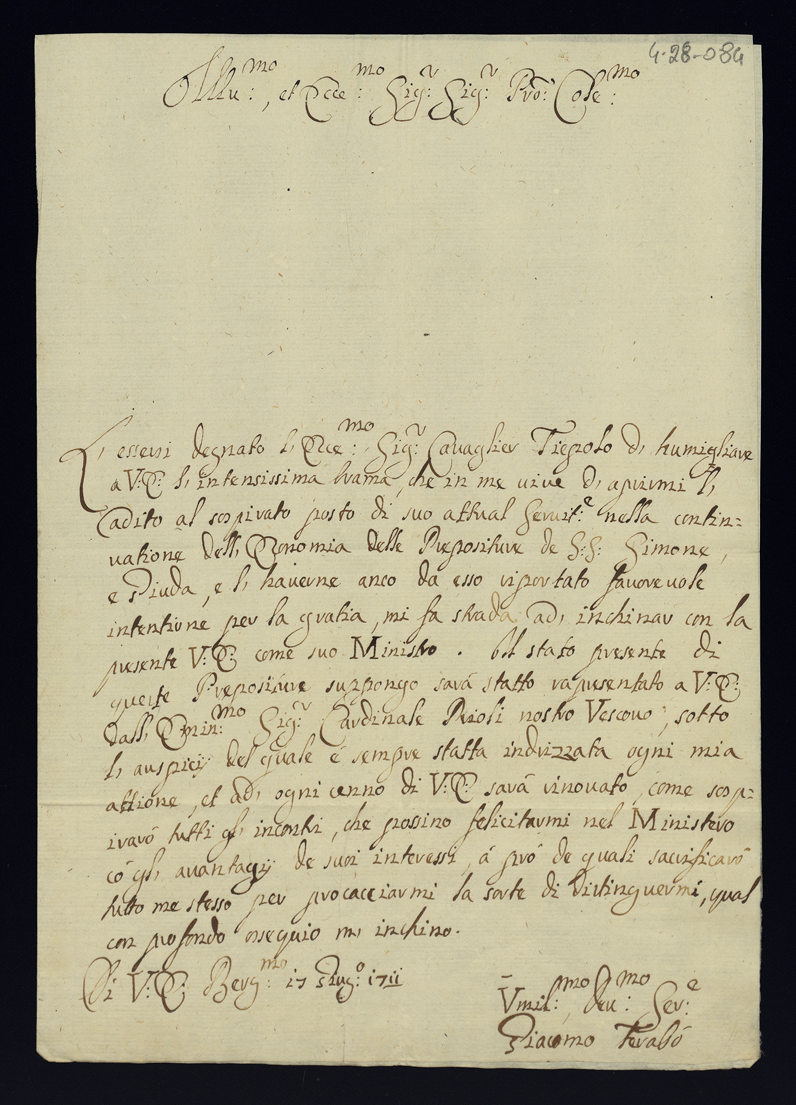 4-28-084
Illu:mo, et Ecce:mo Sig:r Sig:r Pro:n Cole:mo
L' essersi degnato l' Ecce:mo Sig:r Cavaglier Tiepolo d' humigliare
a V:E: l' intensissima brama, che in me vive d' aprirmi l'
adito al sospirato posto di suo attual Servit:e nella contin=
uatione dell' Economia delle Prepositure de S:S: Simone,
e Giuda, e l' haverne anco da esso riportato favorevole
intentione per la gratia, mi fa strada ad' inchinar con la
presente V:E: come suo Ministro. Il stato presente di
queste Prepositure suppongo sarà statto rapresentato a V:E:
dall' Emin:mo Sig:r Cardinale Prioli nostro Vescovo, sotto
l' auspicij del quale è sempre statta indrizzata ogni mia
attione, et ad' ogni cenno di V:E: sarà rinovato, come sosp=
irarò tutti gl' incontri, che possino felicitarmi nel Ministero
cō gl' avantagij de suoi interessi, á pró de quali sacrificarò
tutto me stesso per procacciarmi la sorte di distinguermi, qual
con profondo ossequio m' inchino.
Di V:E: Berg:mo 17 Giug:o 1711
Vmil:mo, Deu:mo Ser:e
Giacomo Terabó